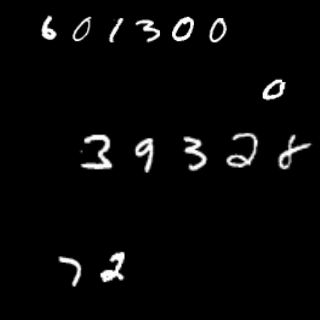 601300
0
39328
72